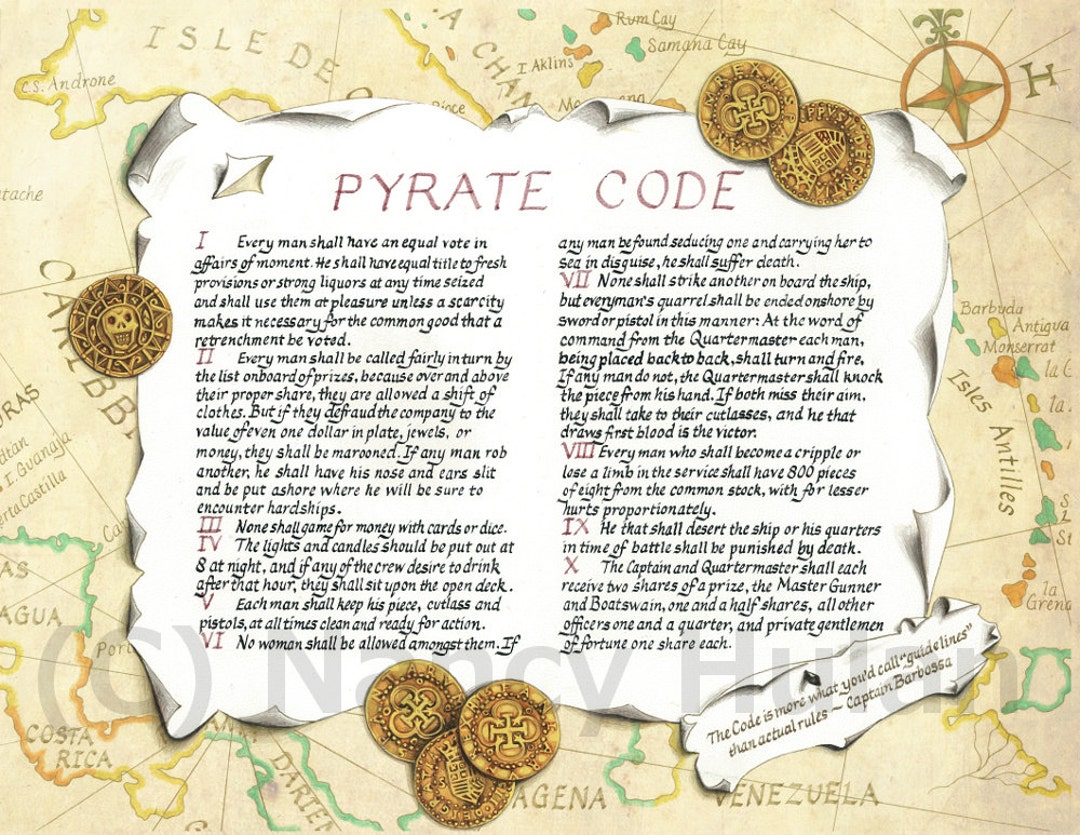 ISLE DE
C.S. Androne
A CHAN
Rum Cay
Samana Cay
I Aklins
H
PYRATE CODE
I Every man shall have an equal vote in
affairs of moment. He shall have equal title to fresh
provisions or strong liquors at any time seized
and shall use them at pleasure unless a scarcity
makes it necessary for the common good that a
retrenchment be voted.
II Every man shall be called fairly in turn by
the list onboard of prizes, because over and above
their proper share, they are allowed a shift of
clothes. But if they defraud the company to the
value of even one dollar in plate, jewels, or
money, they shall be marooned. If any man rob
another, he shall have his nose and ears slit
and be put ashore where he will be sure to
encounter hardships.
III None shall game for money with cards or dice.
IV The lights and candles should be put out at
8 at night, and if any of the crew desire to drink
after that hour, they shall sit upon the open deck.
V Each man shall keep his piece, cutlass and
pistols, at all times clean and ready for action.
VI No woman shall be allowed amongst them. If
any man be found seducing one and carrying her to
sea in disguise, he shall suffer death.
VII None shall strike another on board the ship,
but everyman's quarrel shall be ended onshore by
sword or pistol in this manner: At the word of
command from the Quartermaster each man,
being placed back to back, shall turn and fire,
If any man do not, the Quartermaster shall knock
the piece from his hand. If both miss their aim,
they shall take to their cutlasses, and he that
draws first blood is the victor.
VIII Every man who shall become a cripple or
lose a limb in the service shall have 800 pieces
of eight from the common stock, with for lesser
hurts proportionately.
IX He that shall desert the ship or his quarters
in time of battle shall be punished by death.
X The Captain and Quartermaster shall each
receive two shares of a prize, the Master Gunner
and Boatswain, one and a half shares, all other
officers one and a quarter, and private gentlemen
of fortune one share each.
The Code is more what you'd call "guidelines"
than actual rules ~ Captain Barbossa
tache
CARIBB
URAS
I. Guanaja
Castilla
AS
AGUA
Port
COSTA
RICA
DARIEN
AGENA
VENEZUELA
Barbuda
Antigua
Monserrat
la
Isles Antilles
la
St
la
Grena
(C) Nancy Hulan